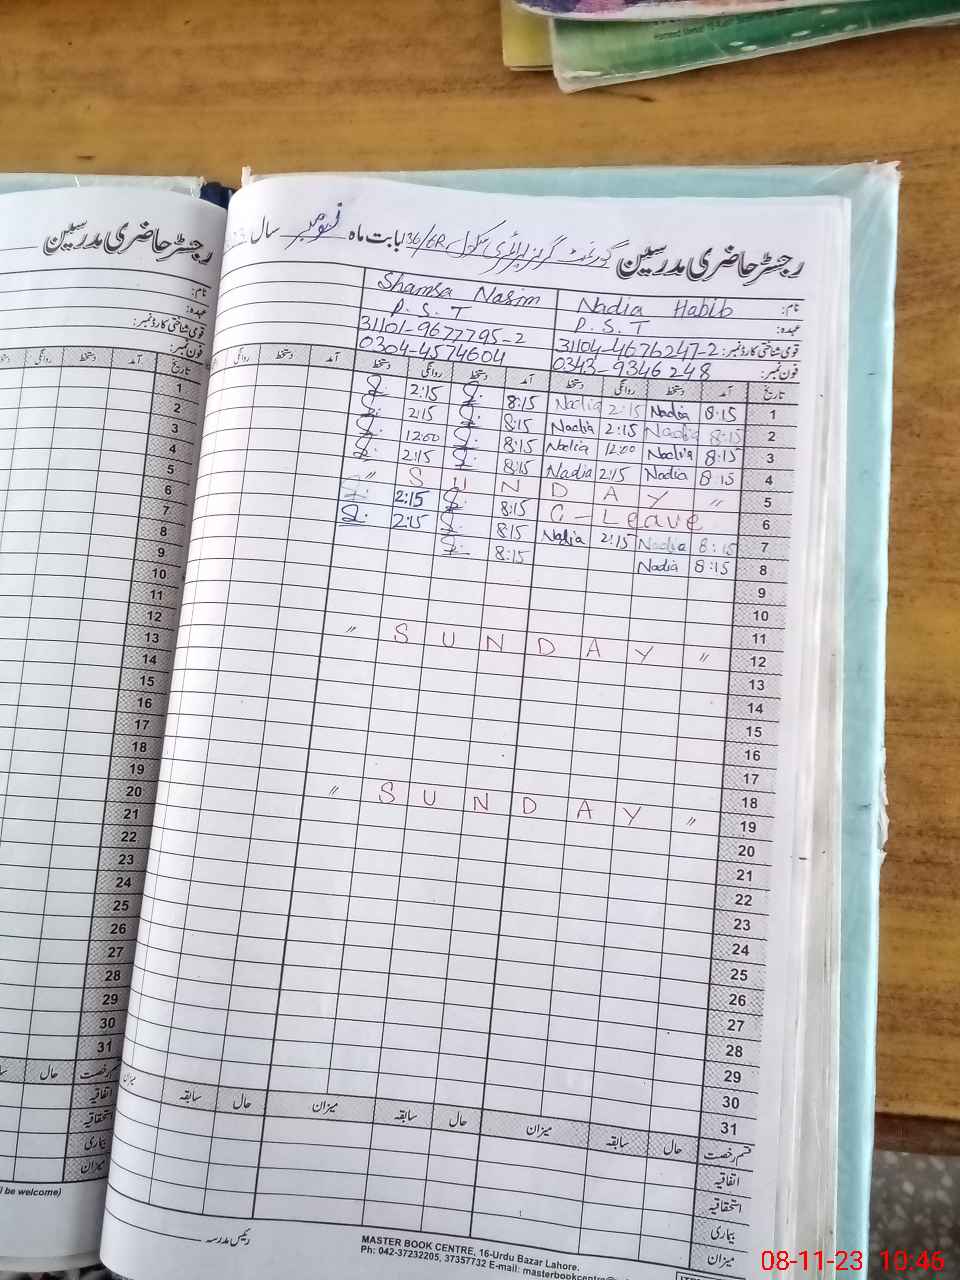 رجسٹر حاضری مدرسین
رجسٹر حاضری مدرسین گورنمنٹ گرلز پرائمری سکول 36/6R بابت ماہ نومبر سال
نام: Nadia Habib Shamsa Nasim
عہدہ: P.S.T P.S.T
قومی شناختی کارڈ نمبر: 31104-4676247-2 31101-9677795-2
فون نمبر: 0343-9346248 0304-4574604
تاریخ آمد دستخط روانگی دستخط آمد دستخط روانگی دستخط آمد دستخط روانگی
1 8:15 Nadia 2:15 Nadia 8:15 2:15
2 8:15 Nadia 2:15 Nadia 8:15 2:15
3 8:15 Nadia 12:00 Nadia 8:15 12:00
4 8:15 Nadia 2:15 Nadia 8:15 2:15
5 " S U N D A Y "
6 C-Leave 8:15 2:15
7 8:15 Nadia 2:15 Nadia 8:15 2:15
8 8:15 Nadia 8:15
9
10
11
12 " S U N D A Y "
13
14
15
16
17
18
19 " S U N D A Y "
20
21
22
23
24
25
26
27
28
29
30
31
قسم رخصت حال سابقہ میزان حال سابقہ میزان حال سابقہ میزان
اتفاقیہ
استحقاقیہ
بیماری
میزان
رئیس مدرسہ
MASTER BOOK CENTRE, 16-Urdu Bazar Lahore.
Ph: 042-37232205, 37357732 E-mail: masterbookcentre@
نام:
عہدہ:
قومی شناختی کارڈ نمبر:
فون نمبر:
تاریخ آمد دستخط روانگی دستخط
1
2
3
4
5
6
7
8
9
10
11
12
13
14
15
16
17
18
19
20
21
22
23
24
25
26
27
28
29
30
31
قسم رخصت حال
اتفاقیہ
استحقاقیہ
بیماری
میزان
be welcome)
08-11-23 10:46